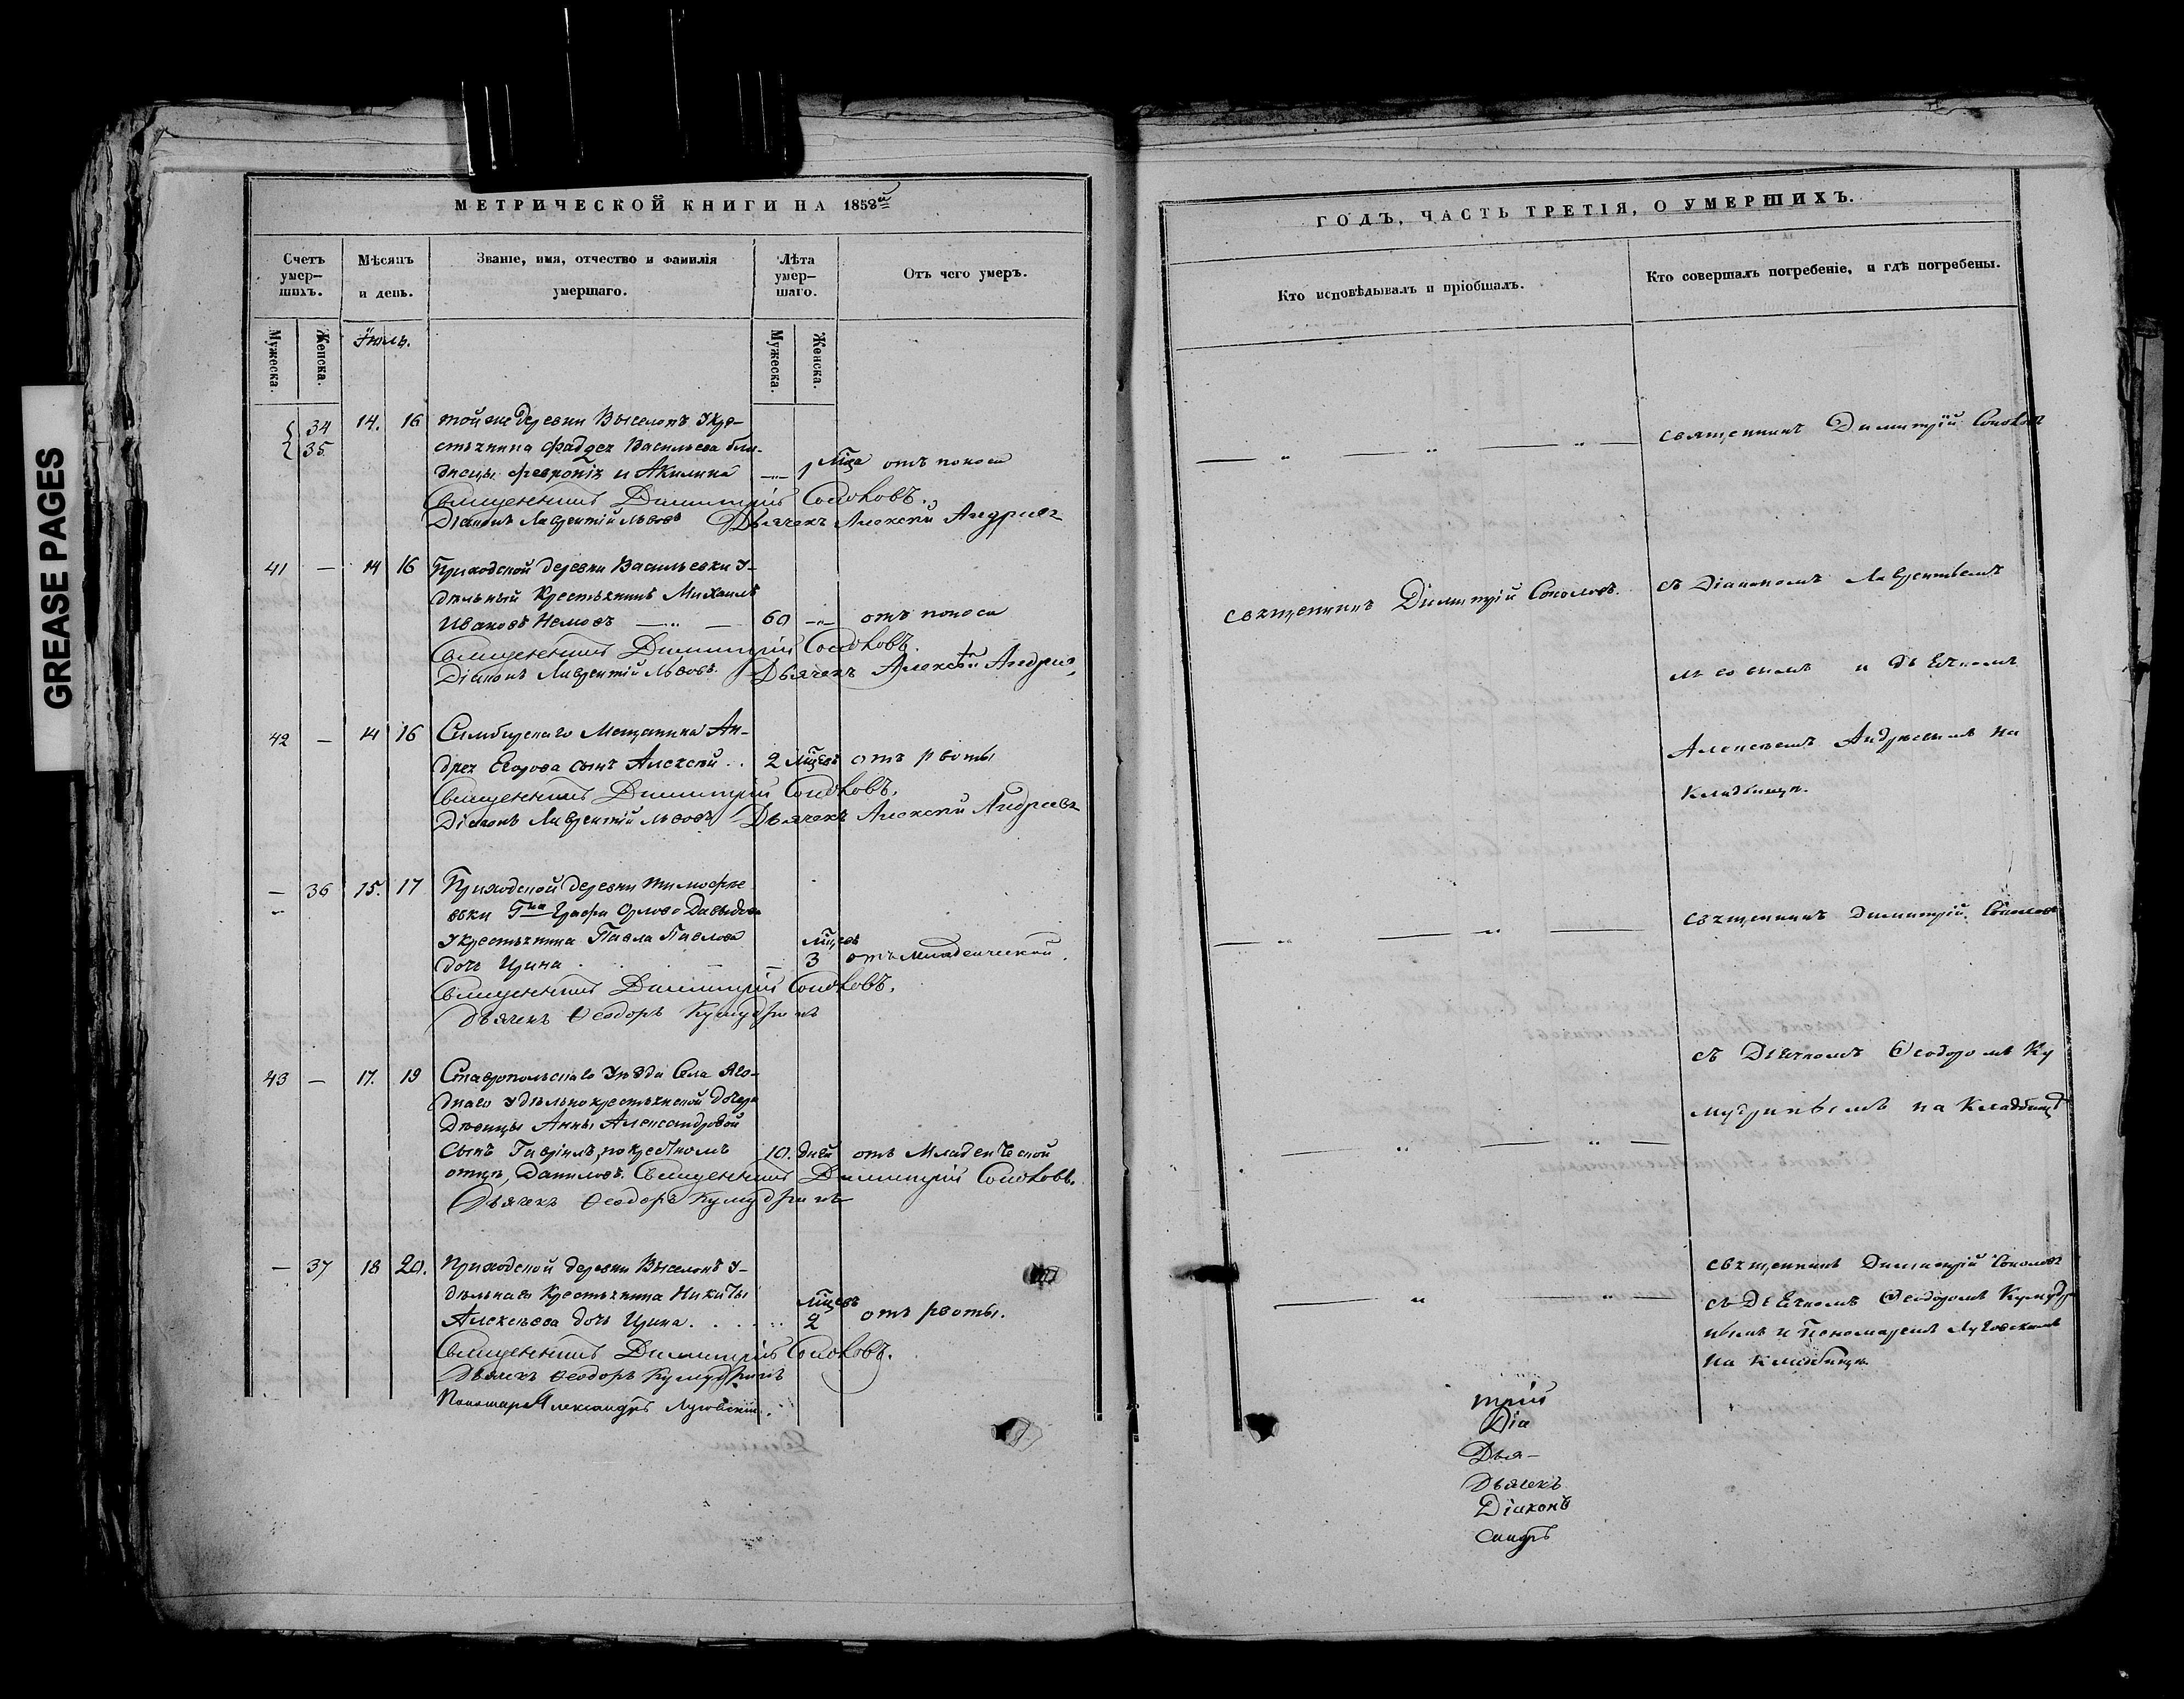 GREASE PAGES
МЕТРИЧЕСКОЙ КНИГИ НА 1858й
Счетъ умер-шихъ.
Мѣсяцъ и день.
Званіе, имя, отчество и фамилія умершаго.
Лѣта умер-шаго.
Отъ чего умеръ.
Мужеска.
Женска.
Іюль.
Мужеска.
Женска.
34 14. 16 той же деревни Выселокъ Укре-
35 стьянина Фаддея Васильева бли-
знецы Феврониія и Акилина 1 мца отъ поноса
Священникъ Димитрій Соколовъ.
Діаконъ Лаврентій Львовъ Дьячекъ Алексѣй Андреевъ
41 — 14 16 Приходской деревни Васильевки У-
дѣльный крестьянинъ Михаилъ
Ивановъ Немовъ 60 отъ поноса
Священникъ Димитрій Соколовъ.
Діаконъ Лаврентій Львовъ. Дьячекъ Алексѣй Андреевъ
42 — 14 16 Симбирскаго Мещанина Ан-
дрея Егорова сынъ Алексѣй . . 2 мцевъ отъ рвоты
Священникъ Димитрій Соколовъ.
Діаконъ Лаврентій Львовъ Дьячекъ Алексѣй Андреевъ
— 36 15. 17 Приходской деревни Тимофее
вки Гна Графа Орлова Давыдова
Укрестьянина Павла Павлова мцевъ
дочь Ирина 3 отъ младенческой.
Священникъ Димитрій Соколовъ.
Дьячекъ Ѳеодоръ Кумудринъ
43 — 17. 19 Ставропольскаго Уѣзда Села Яго-
днаго удѣльнокрестьянской дочери
Дѣвицы Анны Александровой
сынъ Гавріилъ, по крестномъ 10. дней отъ Младенческой
отцѣ, Даниловъ. Священникъ Димитрій Соколовъ.
Дьячекъ Ѳеодоръ Кумудринъ
— 37 18 20. Приходской деревни Выселокъ У-
дѣльнаго Крестьянина Никиты мцевъ
Алексѣева дочь Ирина. . . . 2 отъ рвоты.
Священникъ Димитрій Соколовъ.
Дьячекъ Ѳеодоръ Кумудринъ
Пономарь Александръ Луговскій.
ГОДЪ, ЧАСТЬ ТРЕТІЯ, О УМЕРШИХЪ.
Кто исповѣдывалъ и пріобщалъ.
Кто совершалъ погребеніе, и гдѣ погребены.
священникъ Димитрій Соколовъ
священникъ Димитрій Соколовъ. съ Діакономъ Лаврентіемъ
Львовымъ и дьячкомъ
Алексѣемъ Андреевымъ на
Кладбищѣ.
священникъ Димитрій Соколовъ
съ Дьячкомъ Ѳеодоромъ Ку
мудринымъ на Кладбищѣ
священникъ Димитрій Соколовъ
съ Дьячкомъ Ѳеодоромъ Кумудри
нымъ и Пономаремъ Луговскимъ
на Кладбищѣ.
трій
Діа
Дья-
Дьячекъ
Діаконъ
сандръ